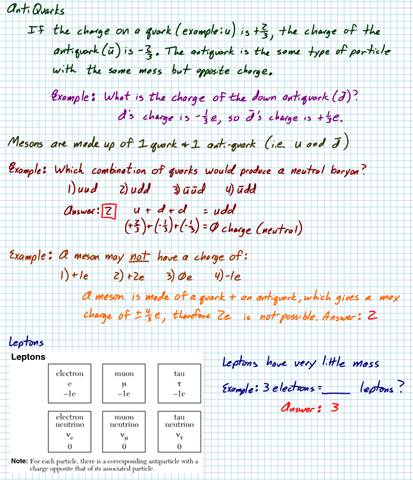 AntiQuarks
If the charge on a quark (example: u) is +2/3, the charge of the
antiquark (ū) is -2/3. The antiquark is the same type of particle
with the same mass but opposite charge.
Example: What is the charge of the down antiquark (d̄)?
d's charge is -1/3e, so d̄'s charge is +1/3e.
Mesons are made up of 1 quark + 1 anti-quark (i.e. u and d̄)
Example: Which combination of quarks would produce a neutral baryon?
1) uud 2) udd 3) ūūd 4) ūdd
Answer: 2 u + d + d = udd
(+2/3)+(-1/3)+(-1/3) = 0 charge (neutral)
Example: A meson may not have a charge of:
1) +1e 2) +2e 3) 0e 4) -1e
A meson is made of a quark + an antiquark, which gives a max
charge of ± 4/3e, therefore 2e is not possible. Answer: 2
Leptons
Leptons
electron muon tau
e μ τ
-1e -1e -1e
electron neutrino muon neutrino tau neutrino
νe νμ ντ
0 0 0
Note: For each particle, there is a corresponding antiparticle with a
charge opposite that of its associated particle.
Leptons have very little mass
Example: 3 electrons = ____ leptons?
Answer: 3